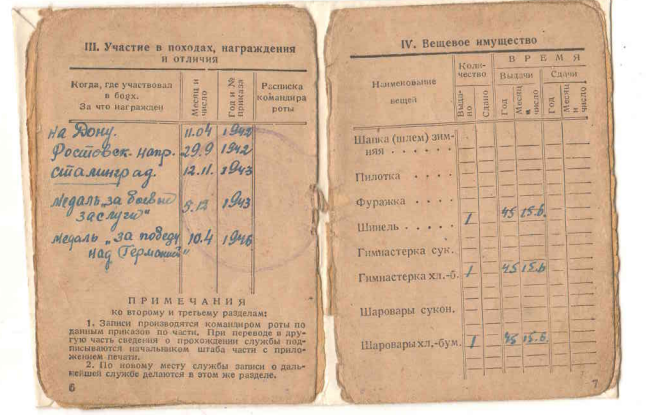 III. Участие в походах, награждения
и отличия
Когда, где участвовал
в боях.
За что награжден
Месяц и
число
Год и №
приказа
Расписка
командира
роты
на Дону. 11.04 1942
Ростовск. напр. 29.9 1942
Сталинград. 12.11. 1943
Медаль "за боевые
заслуги" 5.12 1943
медаль "за победу 10.4 1946
над Германией"
ПРИМЕЧАНИЯ
ко второму и третьему разделам:
1. Записи производятся командиром роты по
данным приказов по части. При переводе в дру-
гую часть сведения о прохождении службы под-
писываются начальником штаба части с прило-
жением печати.
2. По новому месту службы записи о даль-
нейшей службе делаются в этом же разделе.
6
IV. Вещевое имущество
Наименование
вещей
Коли-
чество
Выда-
но
Сдано
ВРЕМЯ
Выдачи
Сдачи
Год
Месяц
и
число
Год
Месяц
и
число
Шапка (шлем) зим-
няя . . . . .
Пилотка . . . .
Фуражка . . . .
Шинель . . . . 1 45 15.6.
Гимнастерка сук.
Гимнастерка хл.-б. 1 45 15.6
Шаровары сукон.
Шаровары хл.-бум. 1 45 15.6.
7